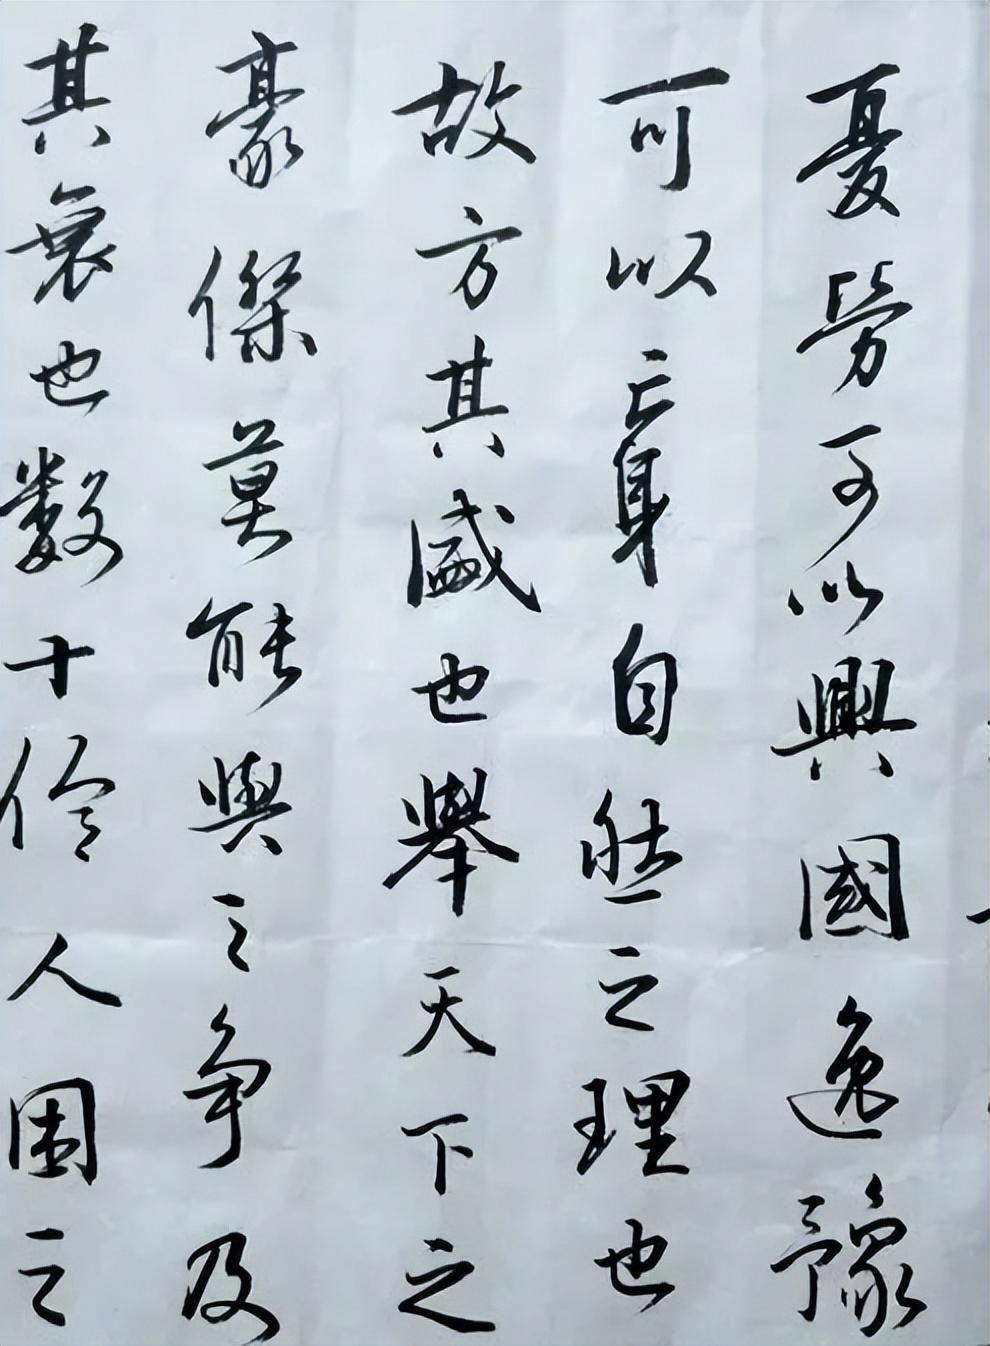 憂勞可以興國逸豫
可以亡身自然之理也
故方其盛也舉天下之
豪傑莫能與之争及
其衰也數十伶人困之